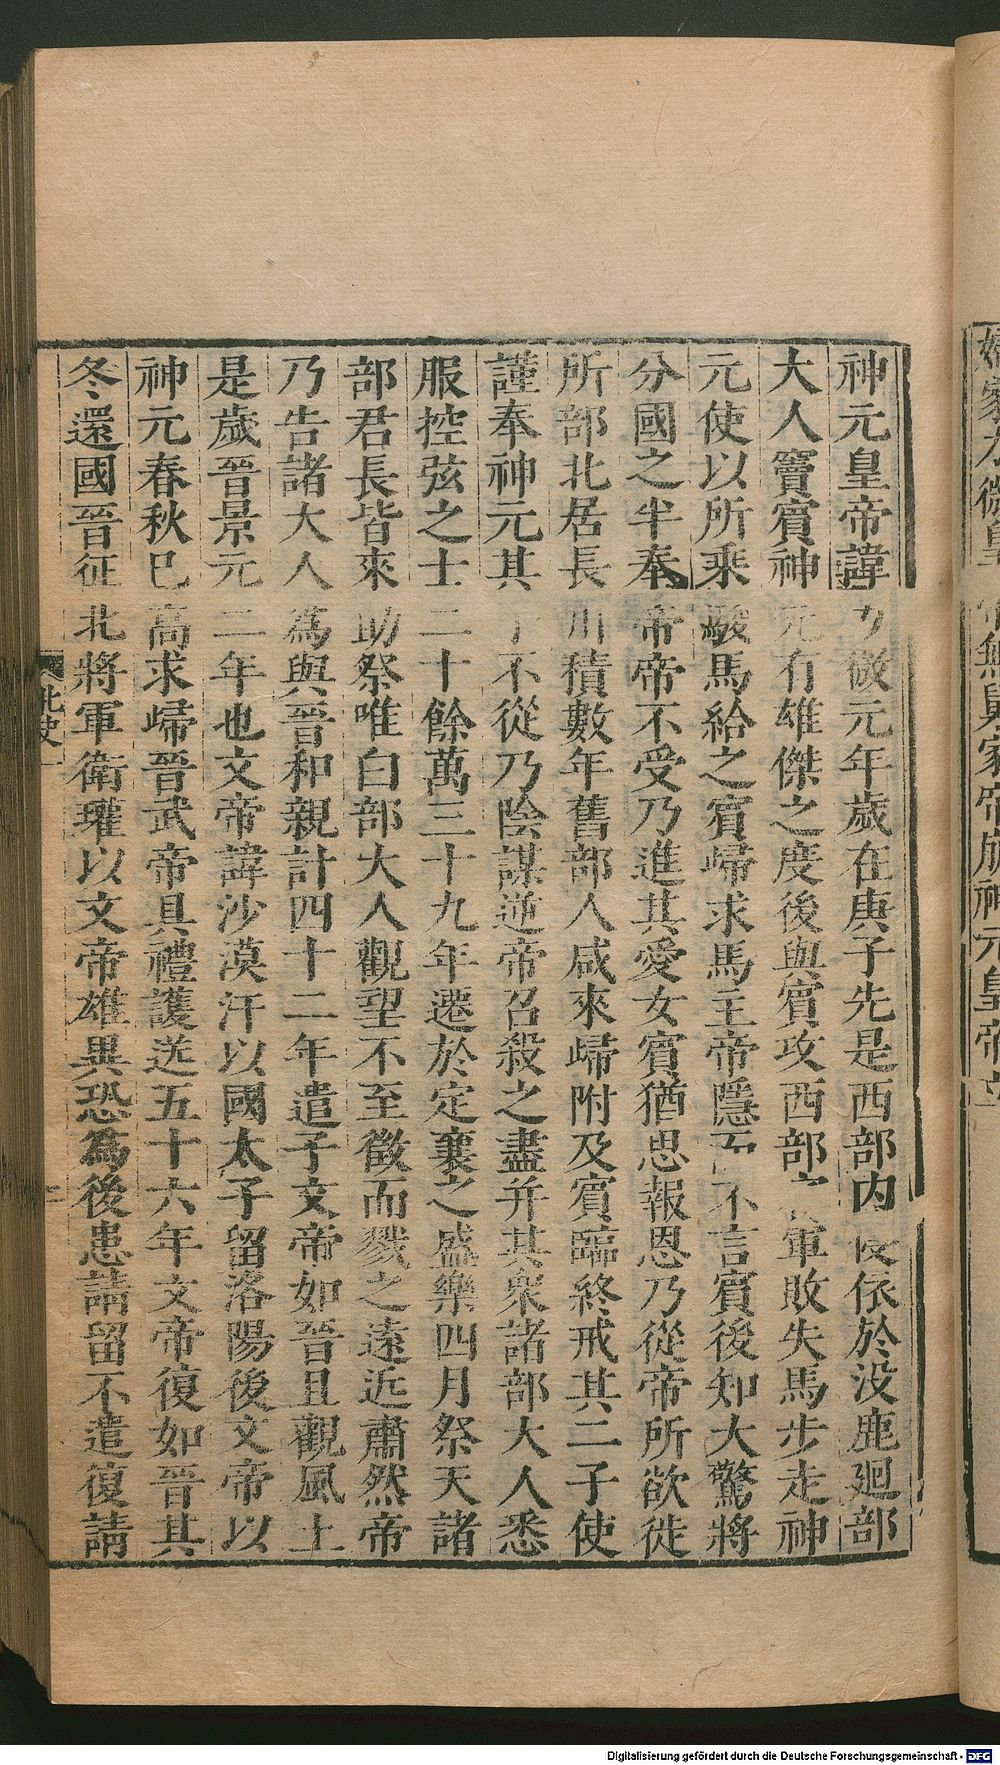 神元皇帝諱力微元年歲在庚子先是西部內侵依於没鹿廻部
大人竇賓神元有雄傑之度後與賓攻西部軍敗失馬步走神
元使以所乘駿馬給之賓歸求馬主帝隱而不言賓後知大驚將
分國之半奉帝帝不受乃進其愛女賓猶思報恩乃從帝所欲徙
所部北居長川積數年舊部人咸來歸附及賓臨終戒其二子使
謹奉神元其子不從乃陰謀逆帝召殺之盡并其衆諸部大人悉
服控弦之士二十餘萬三十九年遷於定襄之盛樂四月祭天諸
部君長皆來助祭唯白部大人觀望不至徵而戮之遠近肅然帝
乃告諸大人為與晉和親計四十二年遣子文帝如晉且觀風土
是歲晉景元二年也文帝諱沙漠汗以國太子留洛陽後文帝以
神元春秋已高求歸晉武帝具禮護送五十六年文帝復如晉其
冬還國晉征北將軍衛瓘以文帝雄異恐為後患請留不遣復請
北史一
元皇帝
Digitalisierung gefördert durch die Deutsche Forschungsgemeinschaft - DFG